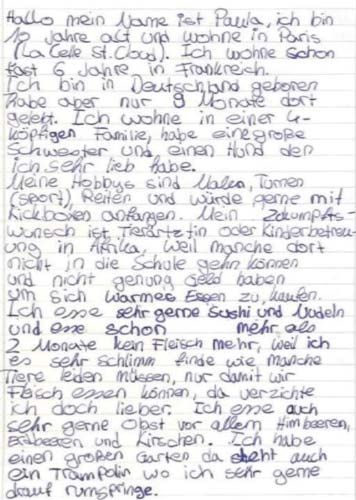 Hallo mein Name ist Paula, ich bin
10 Jahre alt und wohne in Paris
(La Celle St. Cloud). Ich wohne schon
fast 6 Jahre in Frankreich.
Ich bin in Deutschland geboren
habe aber nur 9 Monate dort
gelebt. Ich wohne in einer 4-
köpfigen Familie, habe eine große
Schwester und einen Hund den
ich sehr lieb habe.
Meine Hobbys sind Malen, Turnen
(sport), Reiten und würde gerne mit
Kickboxen anfangen. Mein Zukumpfts-
wunsch ist Tierärtztin oder Kinderbetreu-
ung in Afrika, weil manche dort
nicht in die Schule gehn können
und nicht genung Geld haben
um sich warmes Essen zu kaufen.
Ich esse sehr gerne Sushi und Nudeln
und esse schon mehr als
2 Monate kein Fleisch mehr, weil ich
es sehr schlimm finde wie manche
Tiere leiden müssen, nur damit wir
Fleisch essen können, da verzichte
ich doch lieber. Ich esse auch
sehr gerne Obst vor allem Himbeeren,
Erdbeeren und Kirschen. Ich habe
einen großen Garten da steht auch
ein Trampolin wo ich sehr gerne
drauf rumspringe.